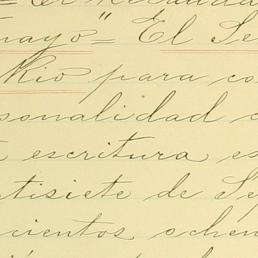 mayo" = El Se
Rio para co
sonalidad c
escritura es
tisiete de Se
cientos ochen